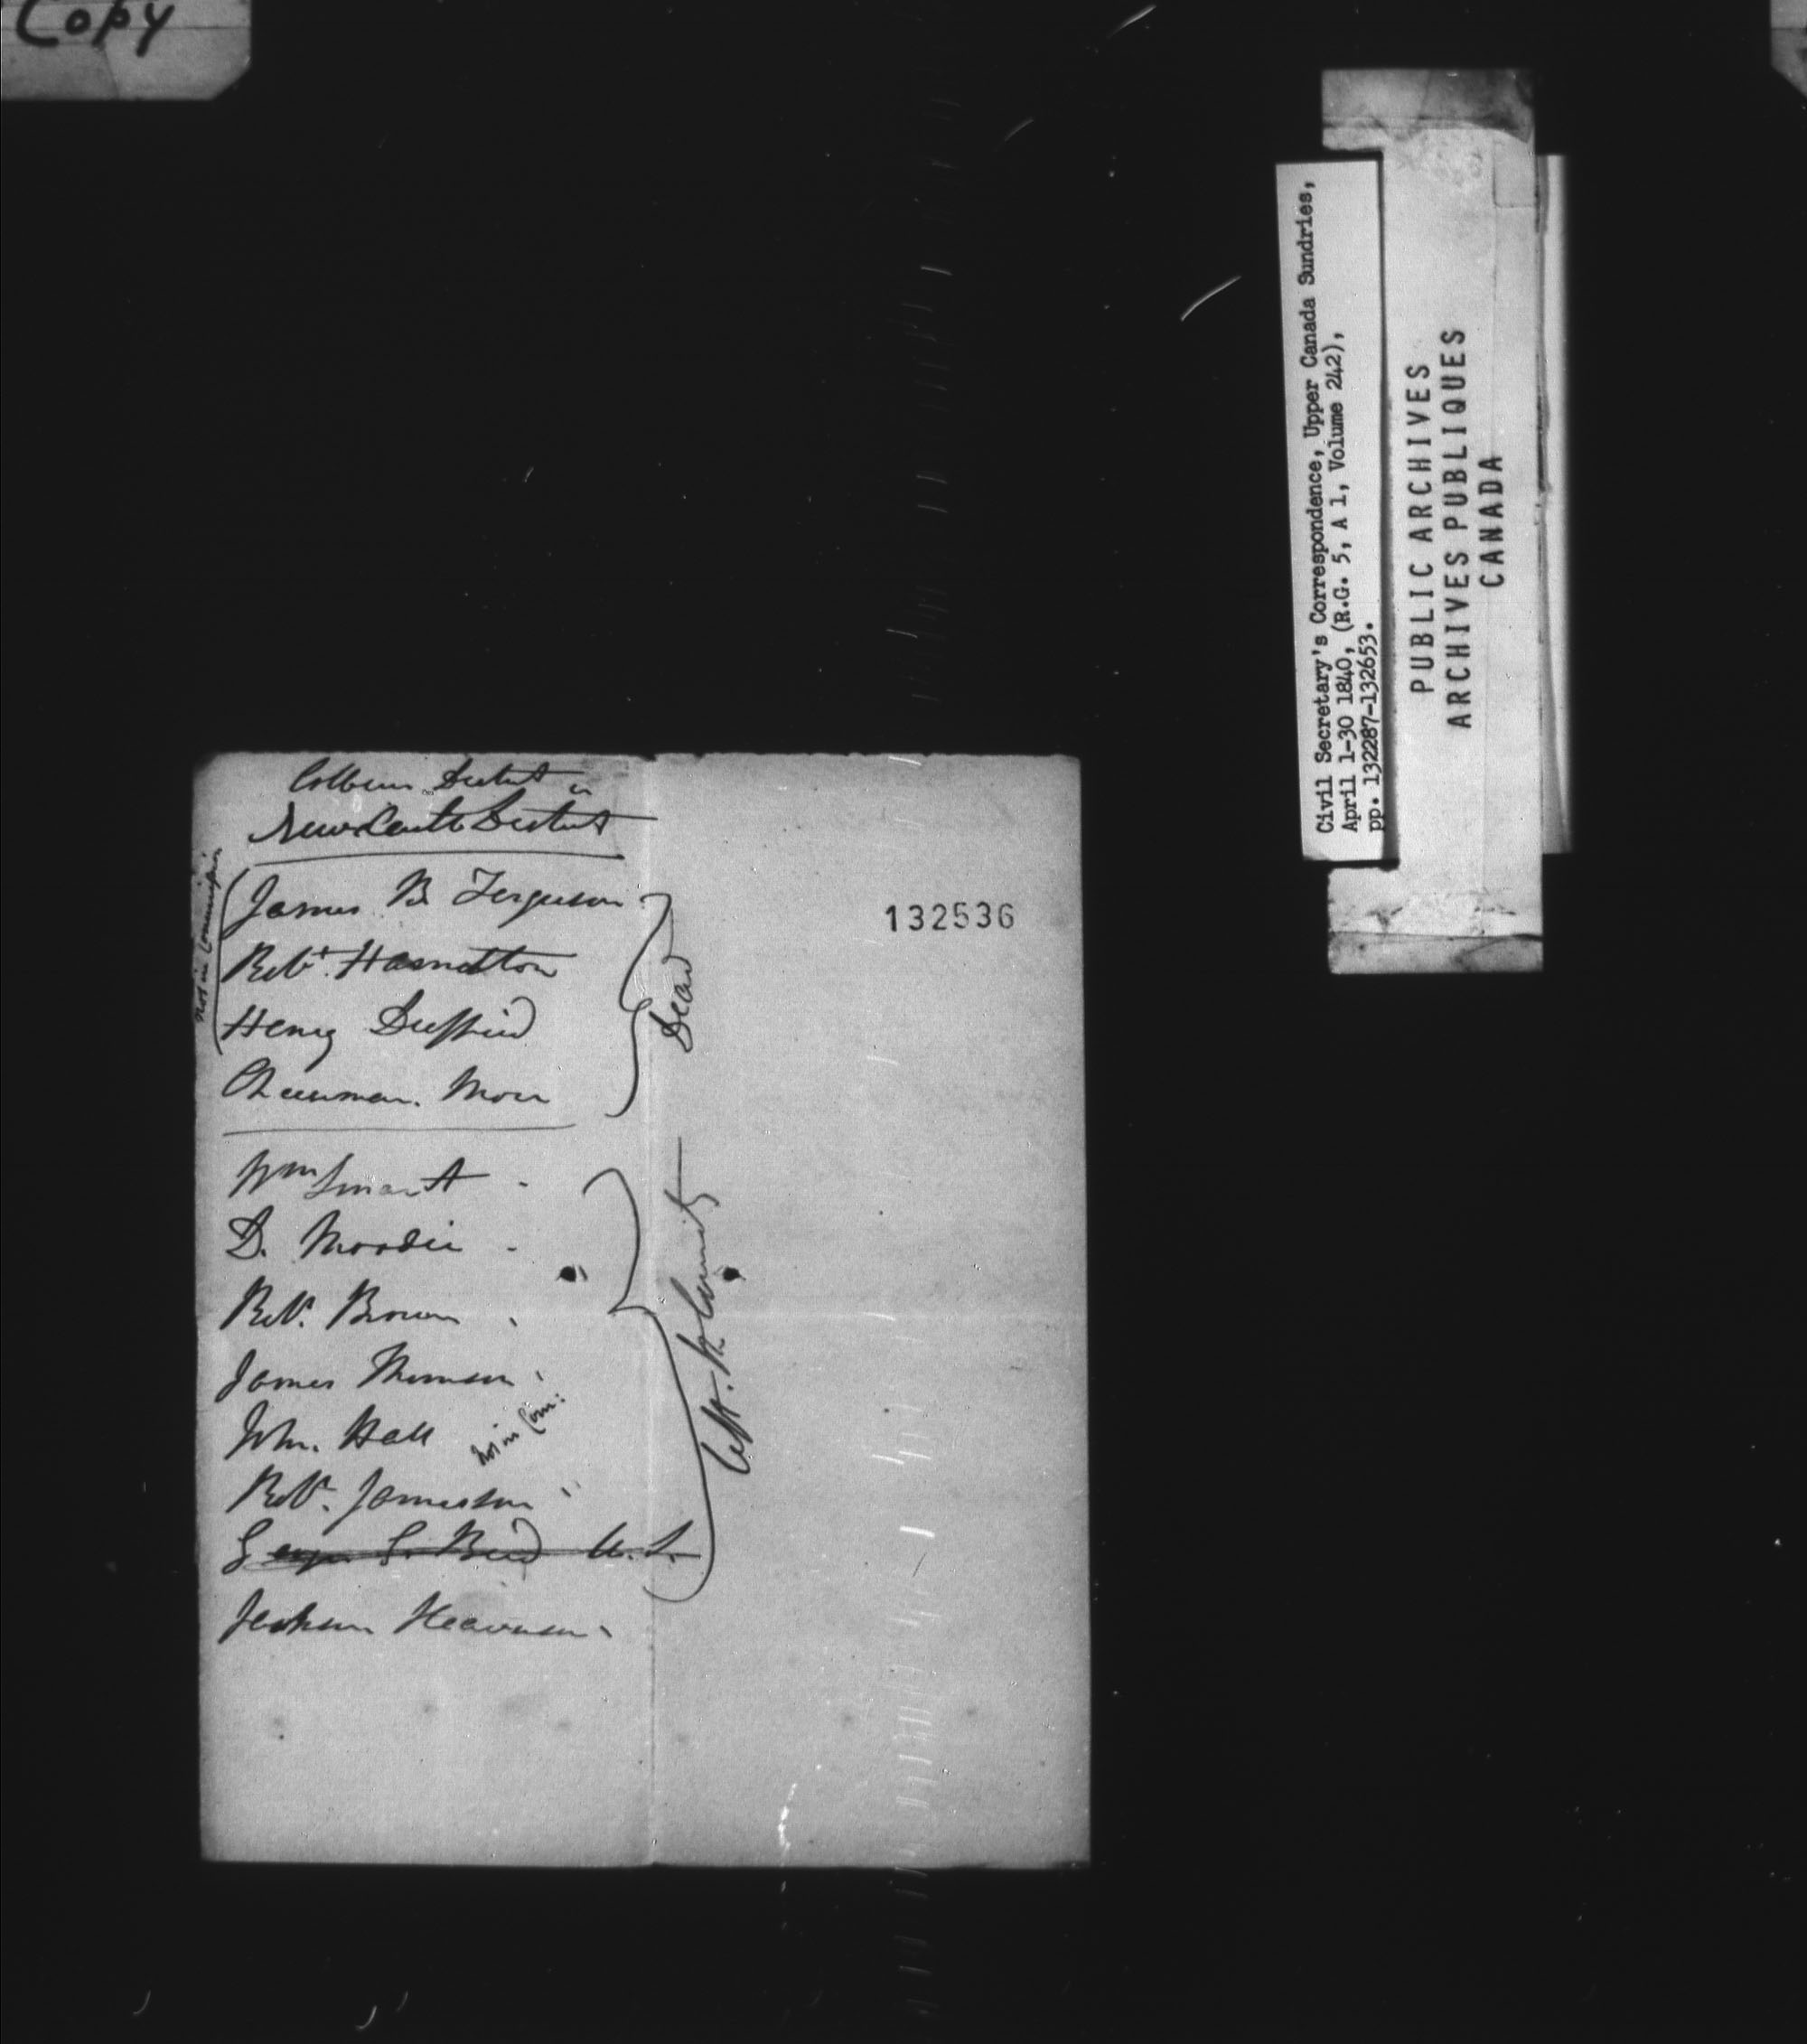 Copy
Civil Secretary's Correspondence, Upper Canada Sundries,
April 1-30 1840, (R.G. 5, A 1, Volume 242),
pp. 132287-132653.
PUBLIC ARCHIVES
ARCHIVES PUBLIQUES
CANADA
132536
District in
Newcastle District
Not in Commission
James B Ferguson
Robt Hamilton
Henry
Dead
Wm Smart
D. Moodie
Robt. Brown
James Thomson
John Hall
not in Com:
Robt. Jameson "
George S. U. S.
Left